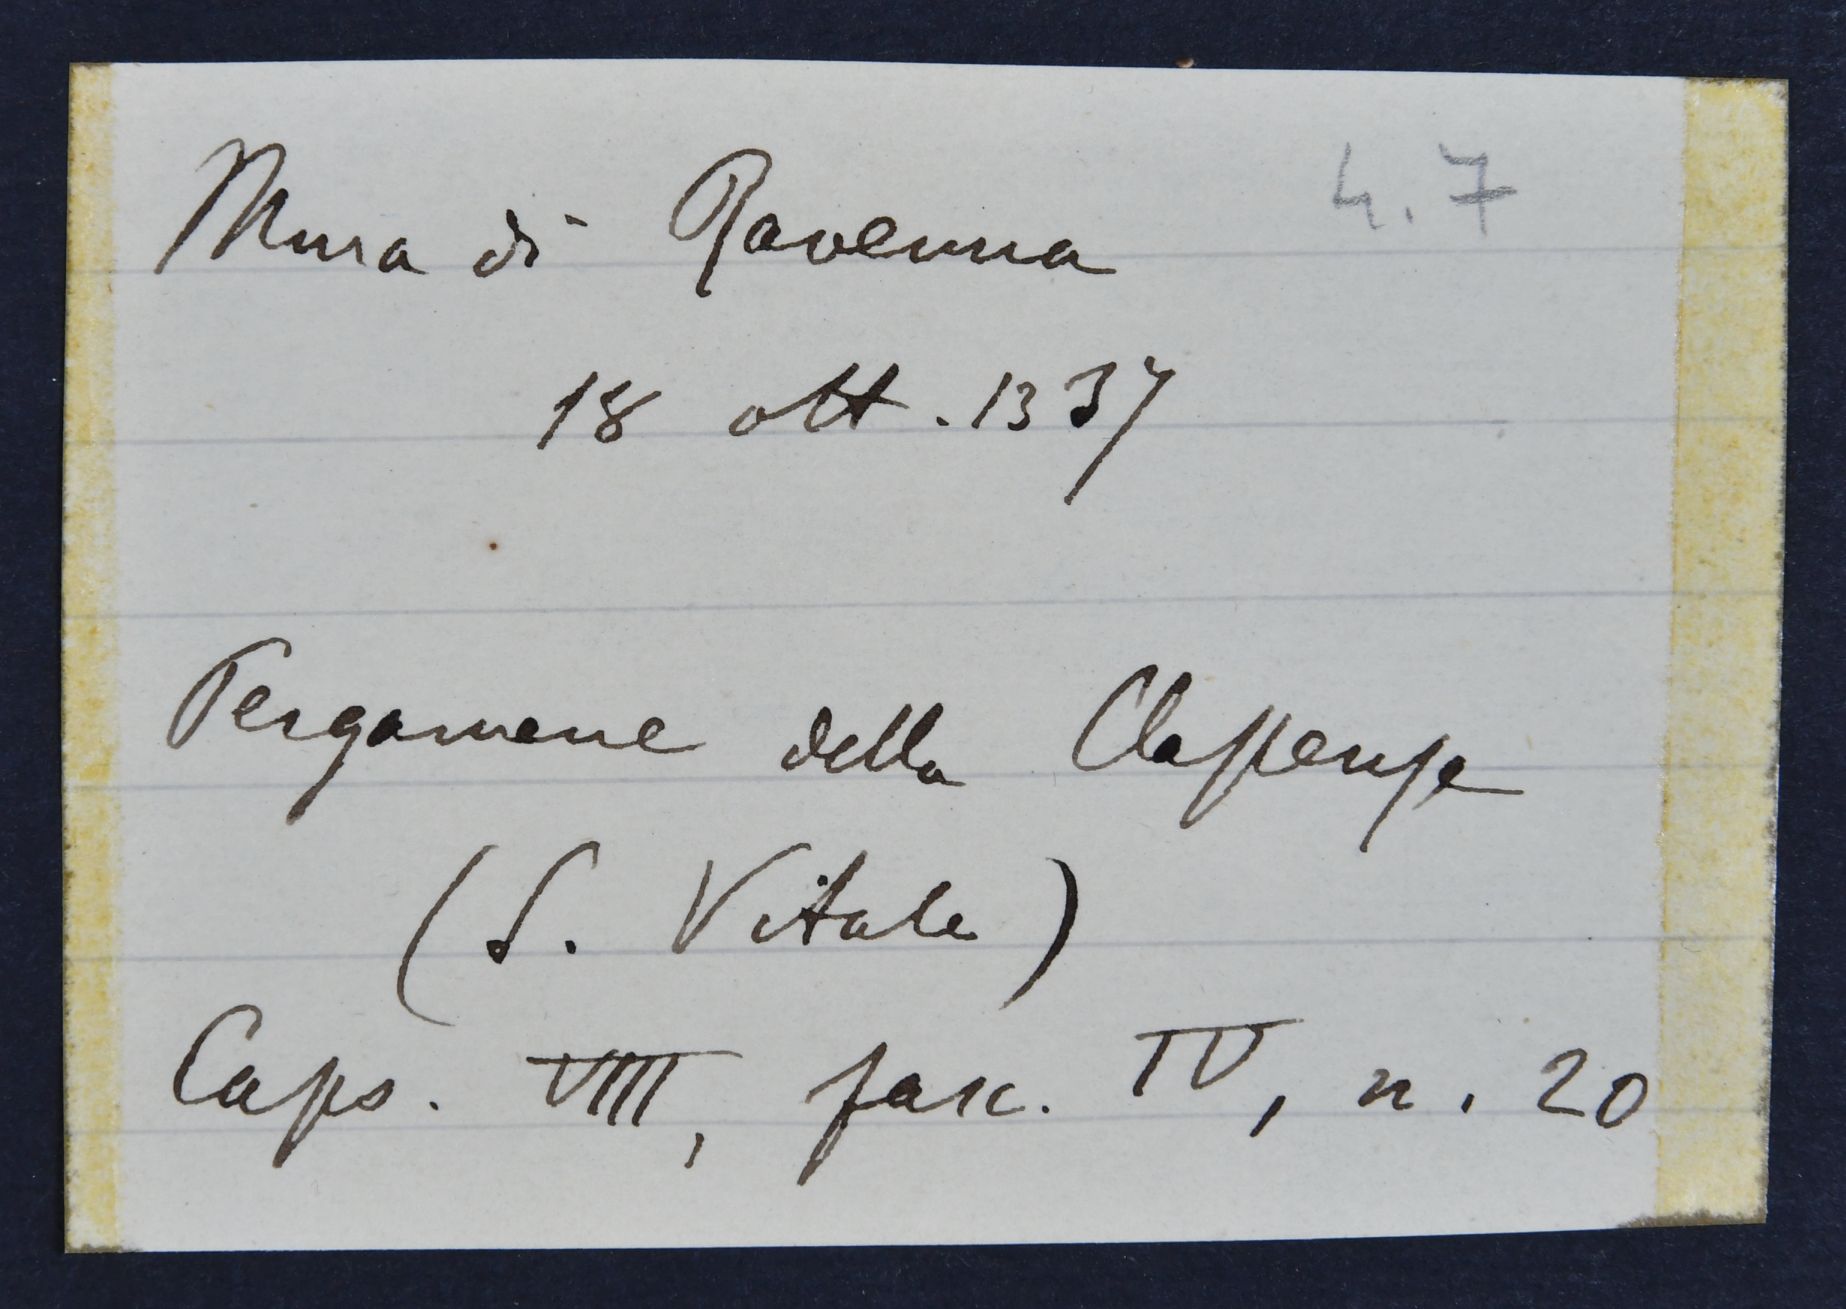 Mura di Ravenna 4.7
18 ott. 1337
Pergamene della Classense
(S. Vitale)
Caps. VIII, fasc. IV, n. 20